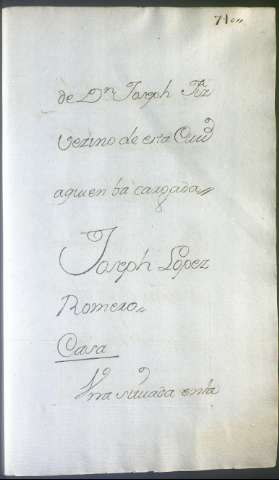 71
de Dn Joseph
Vezino de esta Ciud
aquien ba cargada
Joseph Lopez
Romero
Casa
Vna situada enla